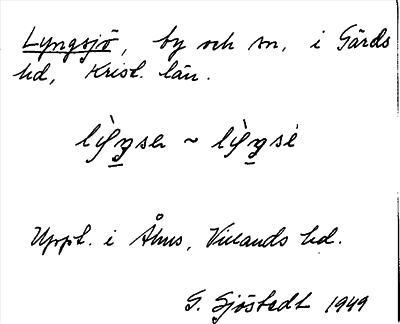 Lyngsjö, by och sn, i Gärds
hd, Krist. län.
Uppt. i Åhus, Villands hd.
G. Sjöstedt 1949